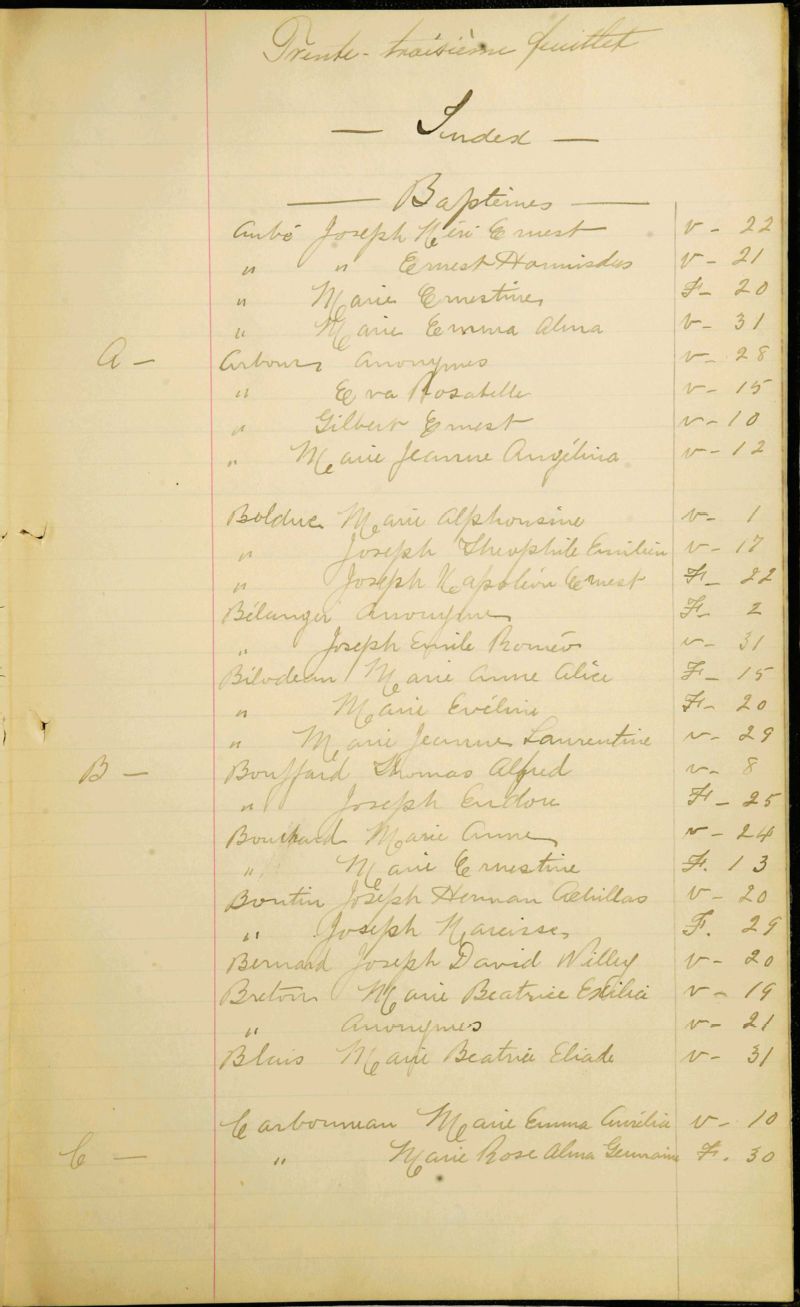 Trente-troisième feuillet
— Index —
— Baptêmes —
Aubé Joseph Néri Ernest v - 22
" " Ernest Hormisdas v - 21
" Marie Ernestine F - 20
" Marie Emma Alma v - 31
A - Arbour Anonymes v - 28
" Eva Rosabelle v - 15
" Gilbert Ernest v - 10
" Marie Jeanne Angélina v - 12
Bolduc Marie Alphonsine v - 1
" Joseph Théophile Emilien v - 17
" Joseph Napoléon Ernest F - 22
Bélanger Anonyme F - 2
" Joseph Emile Roméo v - 31
Bilodeau Marie Anne Alice F - 15
" Marie Evéline F - 20
" Marie Jeanne Laurentine v - 29
B - Bouffard Thomas Alfred v - 8
" Joseph Endore F - 25
Bouchard Marie Anne v - 24
" Marie Ernestine F. 13
Boutin Joseph Herman Achillas v - 20
" Joseph Narcisse F. 29
Bernard Joseph David Willey v - 20
Breton Marie Beatrice Exilia v - 19
" Anonymes v - 21
Blais Marie Beatrice Eliade v - 31
Carbonneau Marie Emma Aurélia v - 10
C - " Marie Rose Alma Germaine F. 30